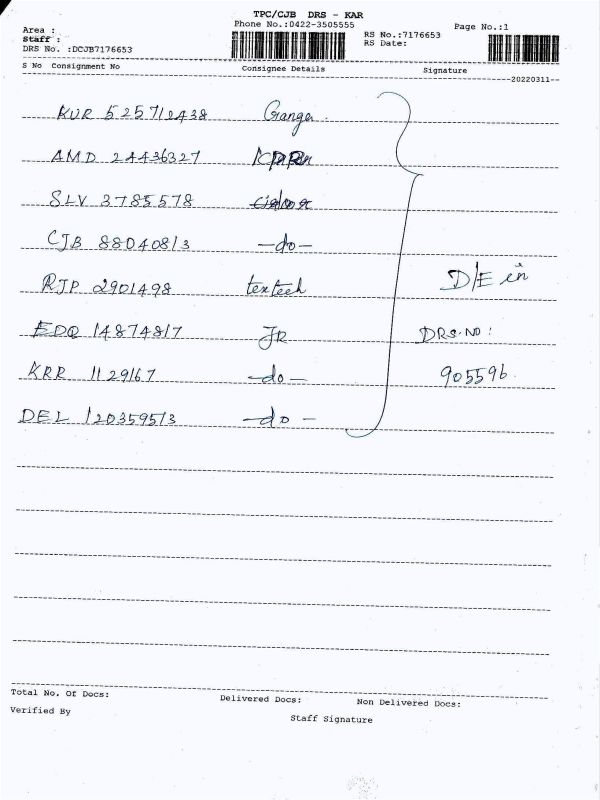 TPC/CJB DRS - KAR
Phone No.:0422-3505555
Page No.:1
Area :
Staff :
RS No.:7176653
RS Date:
DRS No. :DCJB7176653
S No Consignment No Consignee Details Signature
20220311
KUR 525712438 Ganga
AMD 24436327
SLV 3785578
CJB 88040813 -do-
RJP 2901498 textech
EDQ 14874817 JR
KRR 1129167 -do-
DEL 120359513 -do-
D/E in
DRS.NO:
905596.
Total No. Of Docs: Delivered Docs: Non Delivered Docs:
Verified By
Staff Signature